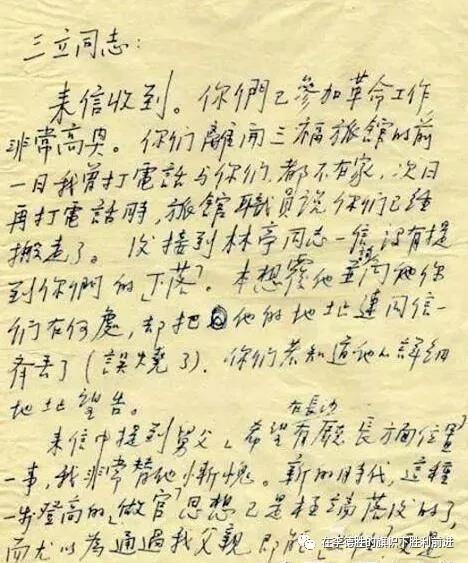 三立同志:
来信收到。你們已參加革命工作,
非常高兴。你们離開三福旅館的前
一日我曾打電話与你们,都不在家,次日
再打電話时,旅館职員説你们已經
搬走了。後接到林亭同志一信,没有提
到你們的「下落」。本想覆他並询问他你
们在何處,却把他的地址連同信一
齊丢了(誤燒了)。你们若知道他的詳細
地址望告。
来信中提到舅父「希望在長沙有廳長方面位置」
一事,我非常替他慚愧。新的時代,這種
一步登高的「做官」思想已是极端落後的了,
而尤以為通過我父親即能「上任」,更是
在李德胜的旗帜下胜利前进